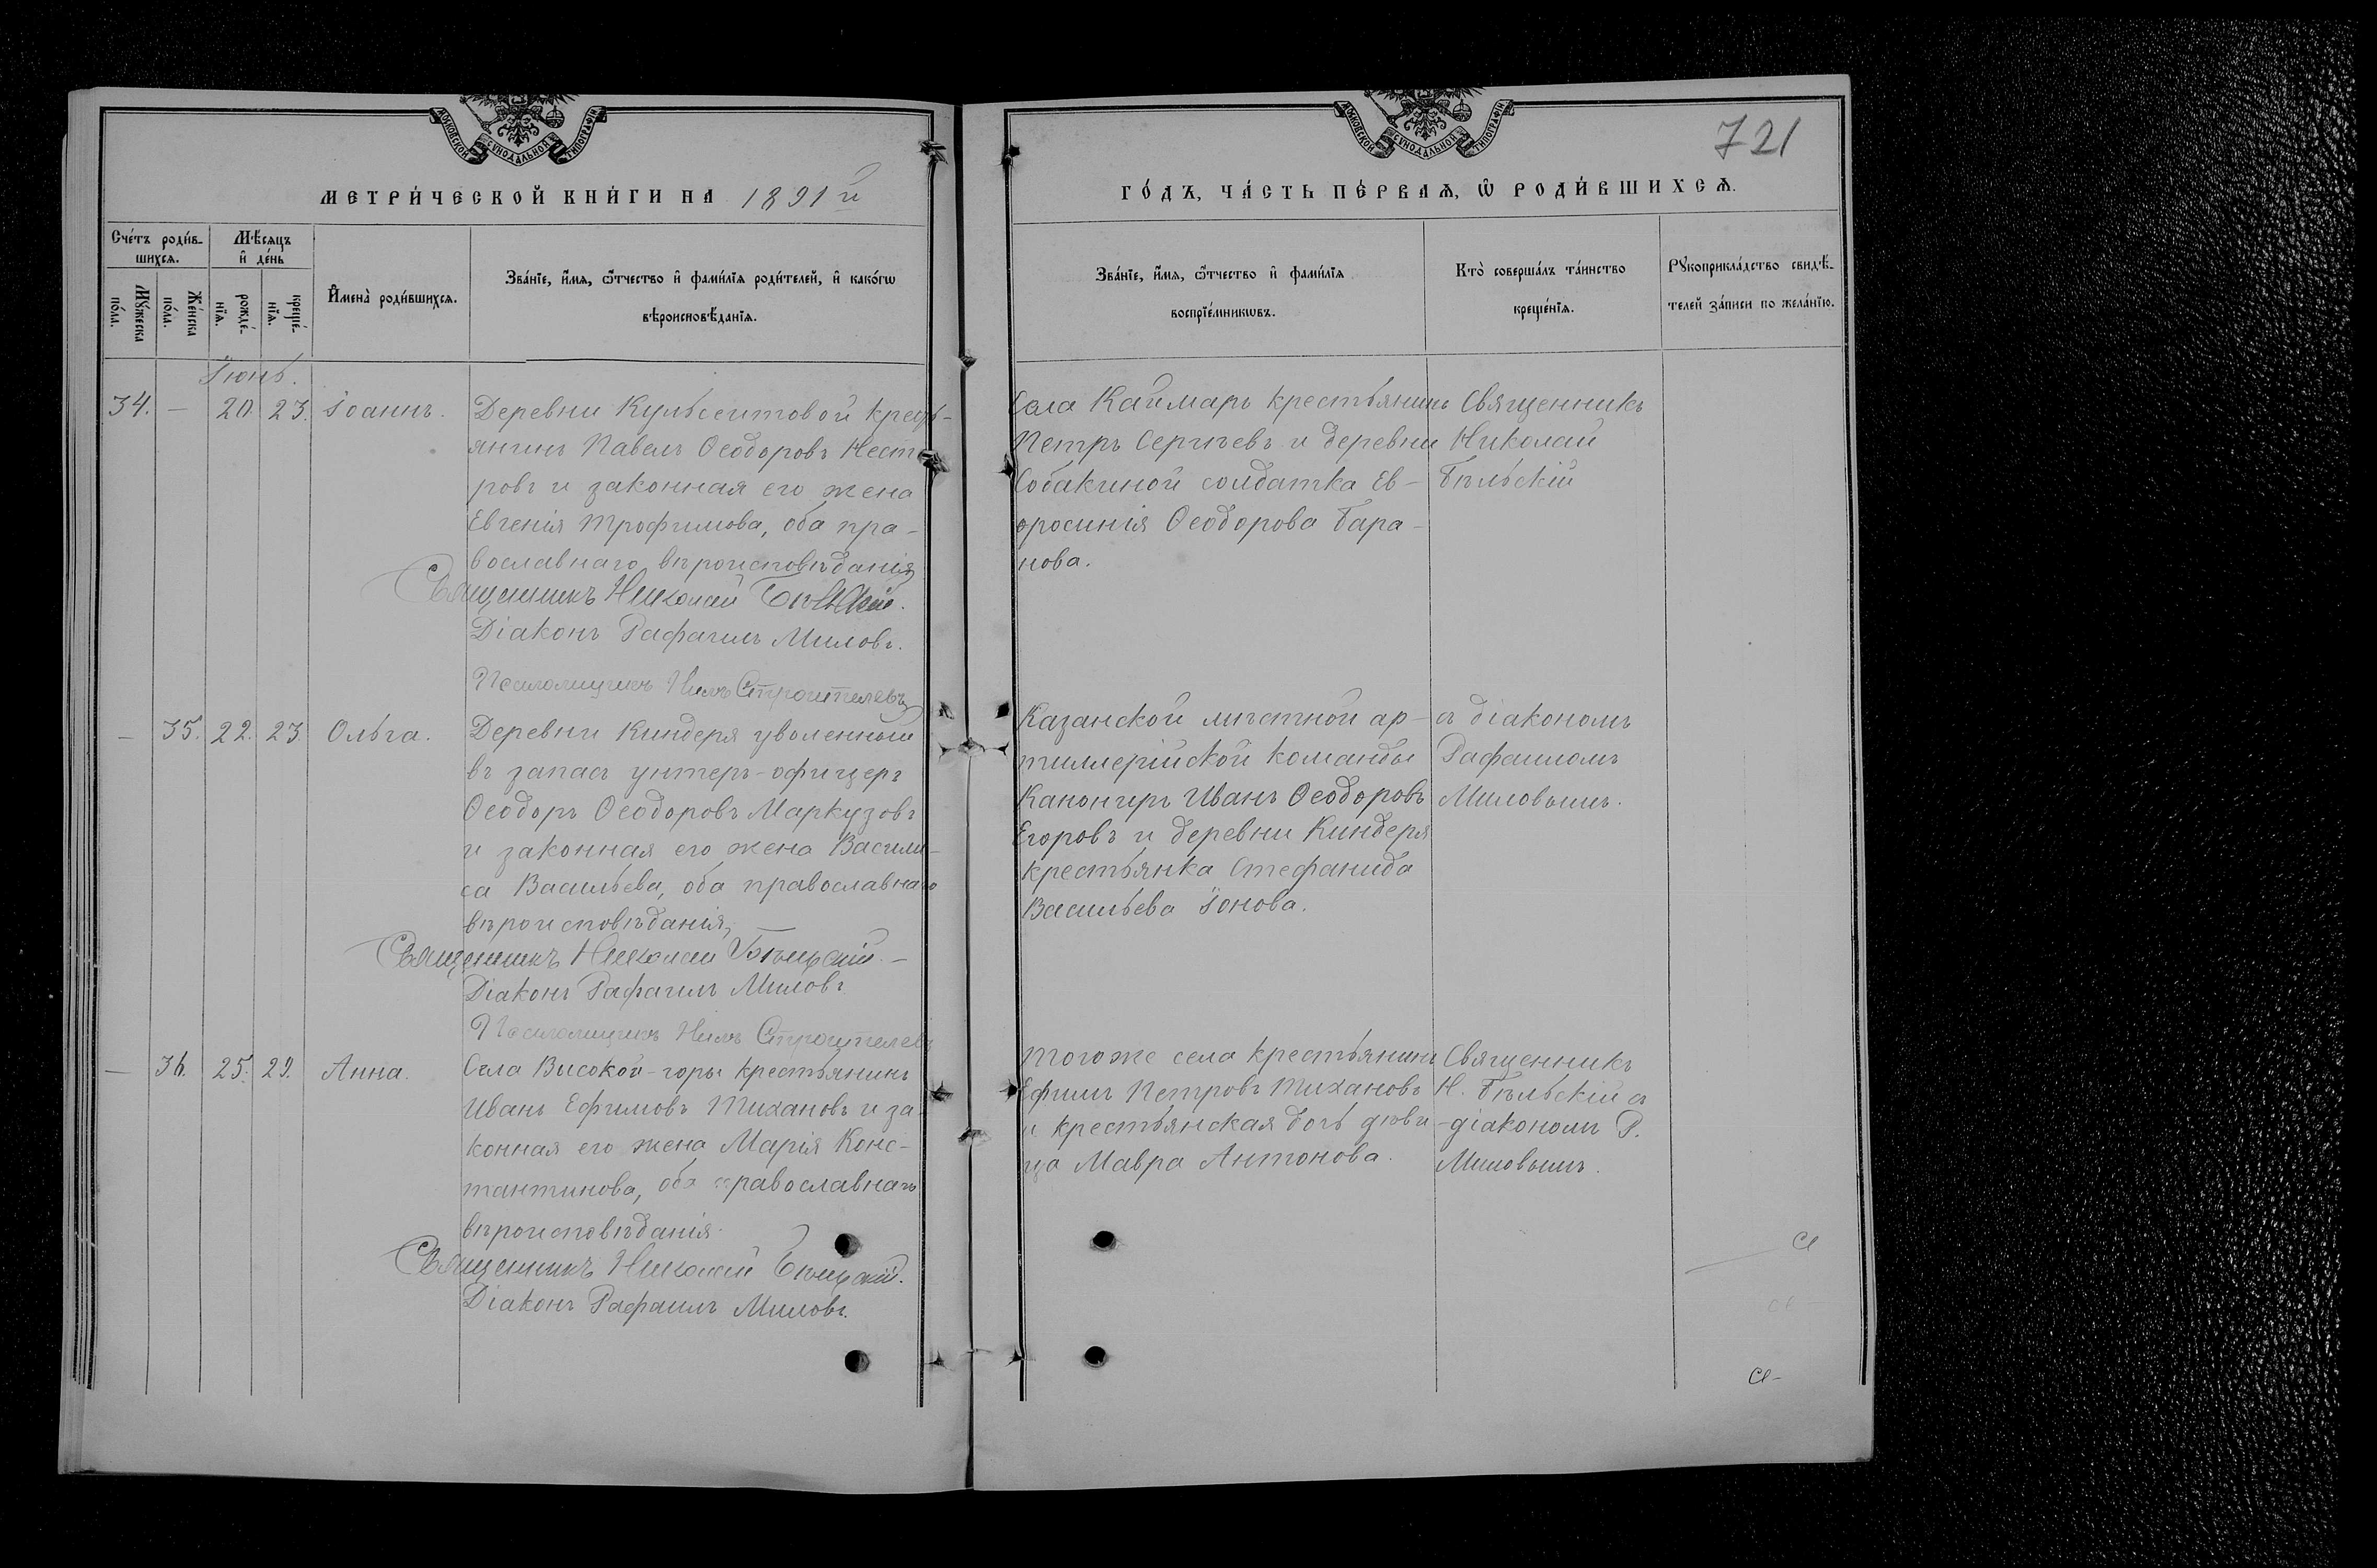 МОСКОВСКОЙ СѴНОДАЛЬНОЙ ТИПОГРАФІИ
МЕТРИ́ЧЕСКОЙ КНИ́ГИ НА 1891 й
Сче́тъ роди́в-
шихсѧ.
Мѣ́сѧцъ
и҆ де́нь
Мꙋ́жеска
по́ла.
Же́нска
по́ла.
рожде́-
нїѧ.
креще́-
нїѧ.
И҆мена̀ роди́вшихсѧ.
Зва́нїе, и҆́мѧ, ѻ҆́тчество и҆ фамѝлїѧ роди́телей, и҆ како́гѡ
вѣроисповѣ́данїѧ.
Іюнь.
34. — 20. 23. Іоаннъ.
Деревни Кульсеитовой кресть-
янинъ Павелъ Ѳеодоровъ Несте-
ровъ и законная его жена
Евгенія Трофимова, оба пра-
вославнаго вѣроисповѣданія
Священникъ Николай Бѣльскій.
Діаконъ Рафаилъ Миловъ.
Псаломщикъ Нилъ Строителевъ
— 35. 22. 23. Ольга.
Деревни Киндеря уволенный
въ запасъ унтеръ-офицеръ
Ѳеодоръ Ѳеодоровъ Маркузовъ
и законная его жена Васили-
са Васильева, оба православнаго
вѣроисповѣданія,
Священникъ Николай Бѣльскій.—
Діаконъ Рафаилъ Миловъ
Псаломщикъ Нилъ Строителевъ
— 36. 25. 29. Анна.
Села Высокой-горы крестьянинъ
Иванъ Ефимовъ Тихановъ и за-
конная его жена Марія Конс-
тантинова, оба православнаго
вѣроисповѣданія.
Священникъ Николай Бѣльскій.
Діаконъ Рафаилъ Миловъ.
МОСКОВСКОЙ СѴНОДАЛЬНОЙ ТИПОГРАФІИ
721
ГО́ДЪ, ЧА́СТЬ ПЕ́РВАѦ, Ѡ҆ РОДИ́ВШИХСѦ.
Зва́нїе, и҆́мѧ, ѻ҆́тчество и҆ фамѝлїѧ
воспрїе́мникѡвъ.
Кто̀ соверша́лъ та́инство
креще́нїѧ.
Рꙋкоприкла́дство свидѣ́-
телей за́писи по жела́нїю.
Села Каймаръ крестьянинъ
Петръ Сергѣевъ и деревни
Собакиной солдатка Ев-
фросинія Ѳеодорова Бара-
нова.
Священникъ
Николай
Бѣльскій
Казанской мѣстной ар-
тиллерійской команды
Канониръ Иванъ Ѳеодоровъ
Егоровъ и деревни Киндеря
крестьянка Стефанида
Васильева Іонова.
съ діакономъ
Рафаиломъ
Миловымъ.
Тогоже села крестьянинъ
Ефимъ Петровъ Тихановъ
и крестьянская дочь дѣви-
ца Мавра Антонова.
Священникъ
Н. Бѣльскій съ
діакономъ Р.
Миловымъ.